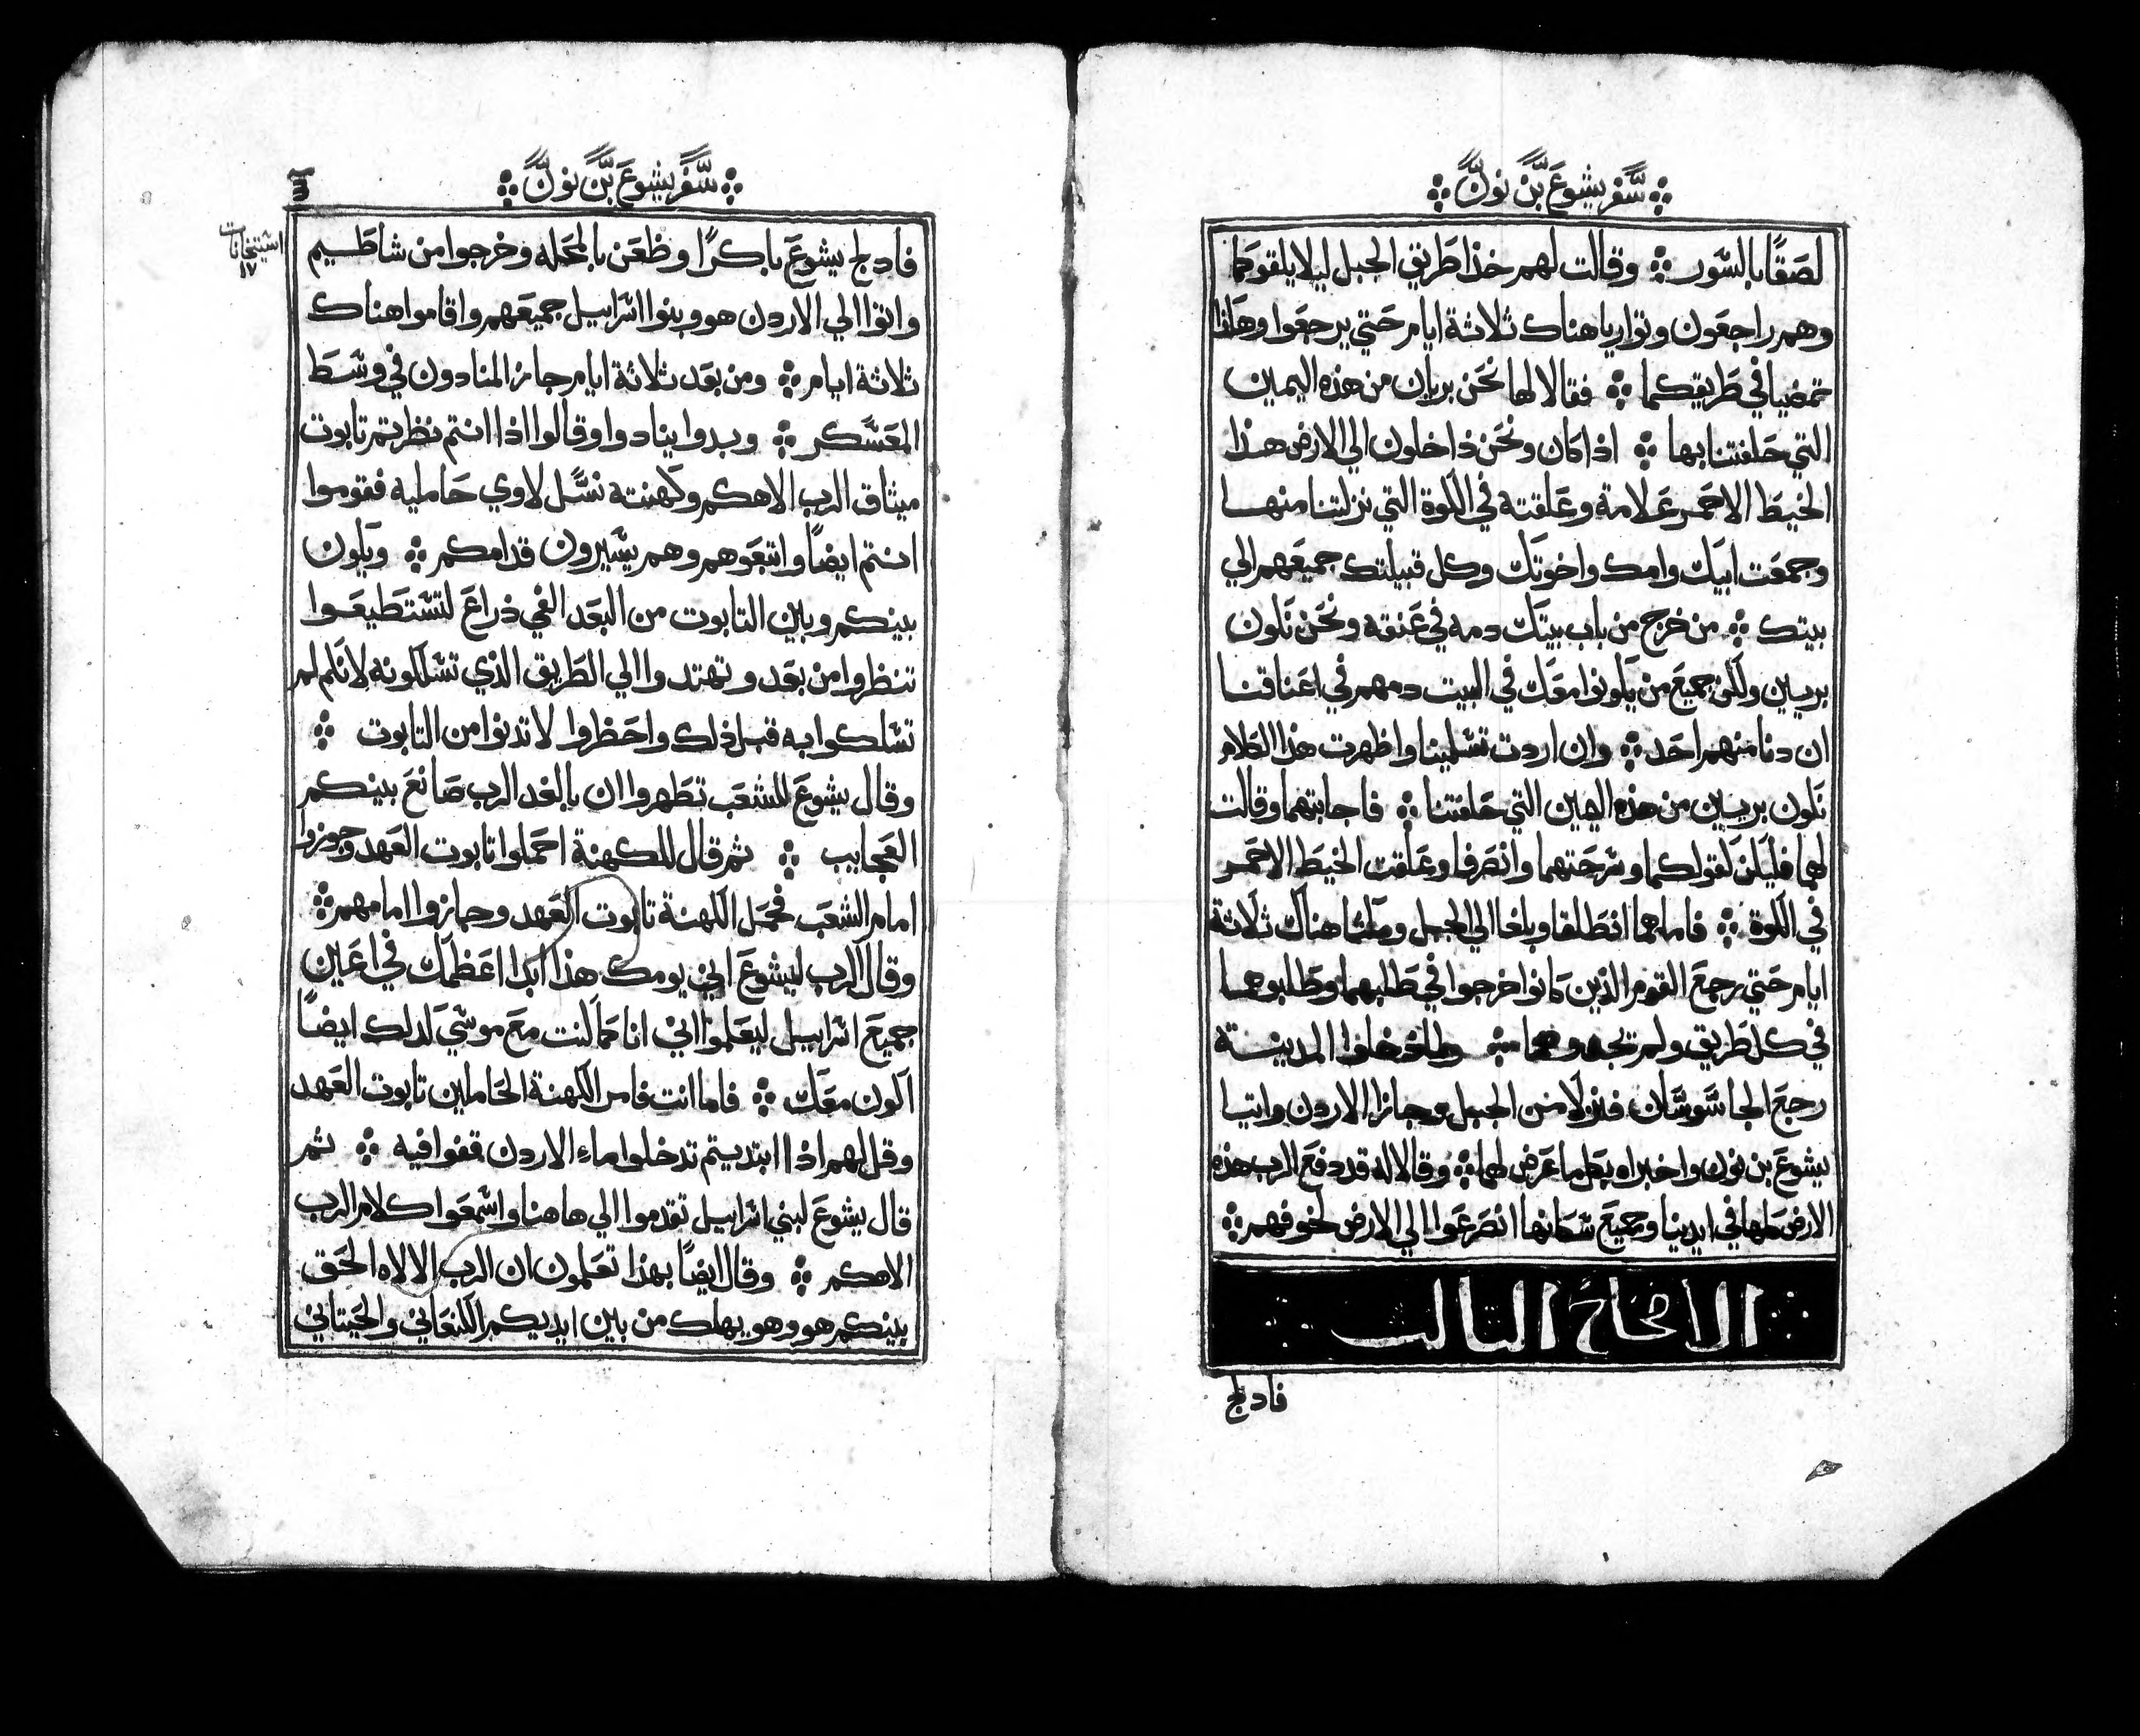 سفر يشوع بن نون
لصقا بالسور وقالت لهم خذا طريق الجبل ليلا يلقوكما
وهم راجعون وتواريا هناك ثلاثة ايام حتي يرجعوا وهكذا
تمضيا في طريقكما فقالا لها نحن بريان من هذه اليمين
التي حلفتنا بها اذا كان ونحن داخلون الي الارض هذا
الخيط الاحمر علامة وعلقته في الكوة التي نزلتنا منها
وجمعت ابيك وامك واخوتك وكل قبيلتك جميعهم الي
بيتك من خرج من باب بيتك دمه في عنقه ونحن نكون
بريين ولكن جميع من يكونوا معك في البيت دمهم في اعناقنا
ان دنا منهم احد وان اردت تسلمينا واظهرت هذا الكلام
نكون بريين من هذه اليمين التي حلفتنا فاجابتهما وقالت
لهما فليكن كقولكما وسرحتهما وانصرفا وعلقت الخيط الاحمر
في الكوة فاما هما انطلقا وبلغا الي الجبل ومكثا هناك ثلاثة
ايام حتي رجع القوم الذين كانوا خرجوا في طلبهما وطلبوهما
في كل طريق ولم تجدوهما دخلوا المدينة
رجع الجاسوسان فنزلا من الجبل وجازا الاردن واتيا
ليشوع بن نون واخبراه بكل ما عرض لهما وقالا له قد دفع الرب هذه
الارض كلها في ايدينا وجميع سكانها انصرعوا الي الارض لخوفهم
الاصحاح التالت
فادلج
سفر يشوع بن نون
استيخانات
١٧
فادلج يشوع باكرا وظعن بالمحله وخرجوا من شاطيم
واتوا الي الاردن هو وبنوا اسراييل جميعهم واقاموا هناك
ثلاثة ايام ومن بعد ثلاثة ايام جاز المنادون في وسط
المعسكر وبدوا ينادوا وقالوا اذا انتم نظرتم تابوت
ميثاق الرب الاهكم وكهنته نسل لاوي حامليه فقوموا
انتم ايضا واتبعوهم وهم يسيرون قدامكم ويكون
بينكم وبين التابوت من البعد الفي ذراع لتستطيعوا
تنظروا من بعد وتهتدوا الي الطريق الذي تسلكونه لانكم لم
تسلكوا به قبل ذلك واحظروا لا تدنوا من التابوت
وقال يشوع للشعب تطهروا ان بالغد الرب صانع بينكم
العجايب ثم قال للكهنة احملوا تابوت العهد وجوزوا
امام الشعب فحمل الكهنة تابوت العهد وجازوا امامهم
وقال الرب ليشوع اني يومك هذا ابدا اعظمك في اعين
جميع اسراييل ليعلموا اني انا كما كنت مع موسي كذلك ايضا
اكون معك فاما انت فامر الكهنة الحاملين تابوت العهد
وقل لهم اذا ابتديتم تدخلوا ماء الاردن قفوا فيه ثم
قال يشوع لبني اسراييل تقدموا الي هاهنا واسمعوا كلام الرب
الاهكم وقال ايضا بهذا تعلمون ان الرب الالاه الحق
بينكم هو وهو يهلك من بين ايديكم الكنعاني والحيتاني